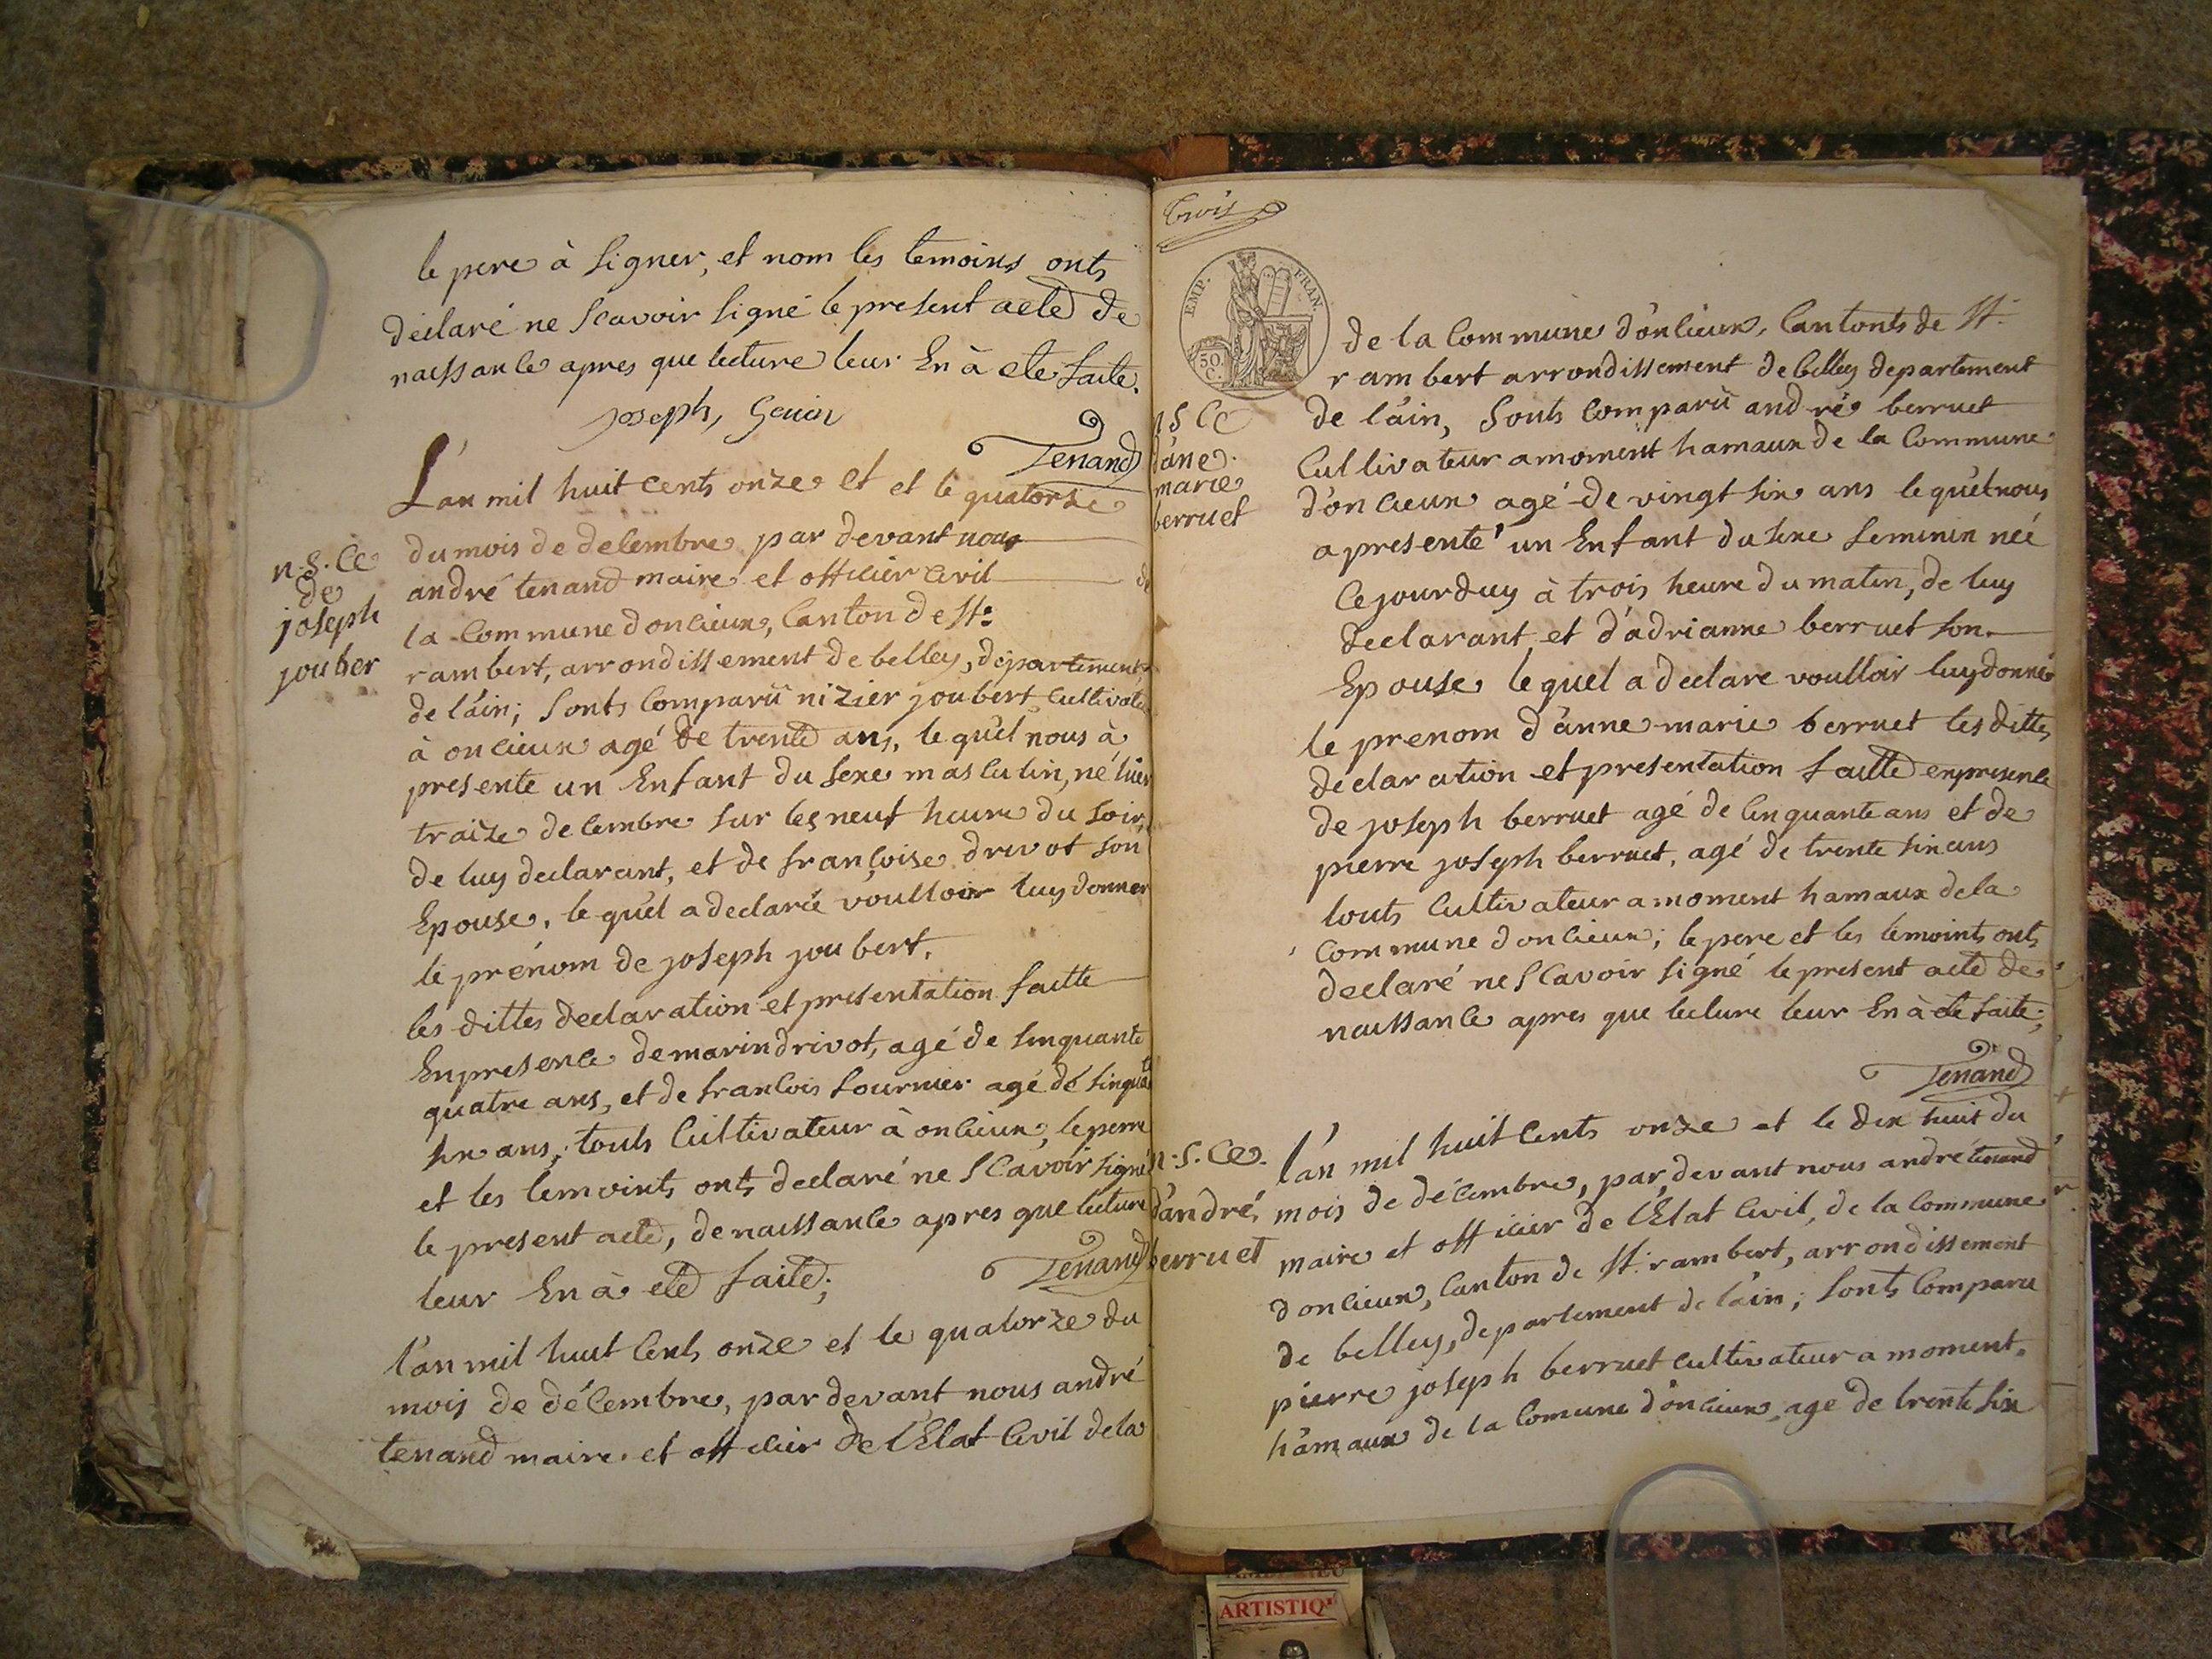 le pere à signer, et nom les temoins onts
déclaré ne scavoir signé le present acte de
naissance apres que lecture leur En à ete faite.
joseph, Genin
Tenand
n.s.ce
de
joseph
jouber
L'an mil huit cents onze et et le quatorse
du mois de decembre par devant nous
andré tenand maire et officier civil de
la Commune doncieux, Canton de St.
rambert, arrondissement de belley, département
de l'ain; sonts Comparû nizier joubert Cultivateur
à oncieux agé de trente ans, le quél nous à
presente un Enfant du sexe masculin, né hier
traize decembre sur les neuf heure du soir,
de luy declarant, et de françoise drivot son
Epouse, le quél a declarée voulloir luy donner
le prénom de joseph joubert.
les dittes declaration et presentation faitte
En presence de marin drivot, agé de sinquante
quatre ans, et de francois fournier agé de sinquante
six ans, touts Cultivateur à oncieux, le pere
et les temoints onts declaré ne scavoir signé
le present acte, de naissance apres que lecture
leur En à eté faite;
Tenand
l'an mil huit Cents onze et le quatorze du
mois de décembre, par devant nous andré
tenand maire et officier de l'Etat Civil de la
trois
EMP. FRAN.
50 C.
n s ce
d'ane
marie
berruet
de la Commune d'oncieux, Cantonts de St.
rambert arrondissement de belley departement
de l'ain, sonts Comparû andré berruet
Cultivateur a moment hamaux de la Commune
d'oncieux agé de vingt six ans le quél nous
a presenté un Enfant du sexe feminin née
Cejourduy à trois heure du matin, de luy
declarant et d'adrianne berruet son
Epouse le quel a declare voulloir luy donné
le prenom d'anne marie berruet les dittes
declaration et presentation faitte en presence
de joseph berruet agé de Cinquante ans et de
pierre joseph berruet, agé de trente six ans
touts Cultivateur a moment hamaux de la
Commune d'oncieux; le pere et les temoints onts
declaré ne scavoir signé le present acte de
naissance apres que lecture leur En à été faite;
Tenand
n.s.ce.
d'andré
berruet
l'an mil huit Cents onze et le dix huit du
mois de décembre, par devant nous andré tenand
maire et officier de l'Etat Civil, de la Commune
d'oncieux, Canton de St. rambert, arrondissement
de belley, departement de l'ain; sonts Comparu
pierre joseph berruet cultivateur a moment
hamaux de la Comune d'oncieux, age de trente six
ARTISTIQ